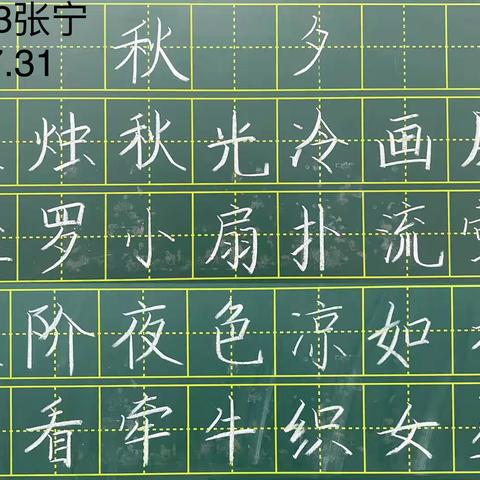 3张宁
7.31
秋夕
烛秋光冷画
罗小扇扑流
阶夜色凉如
看牵牛织女